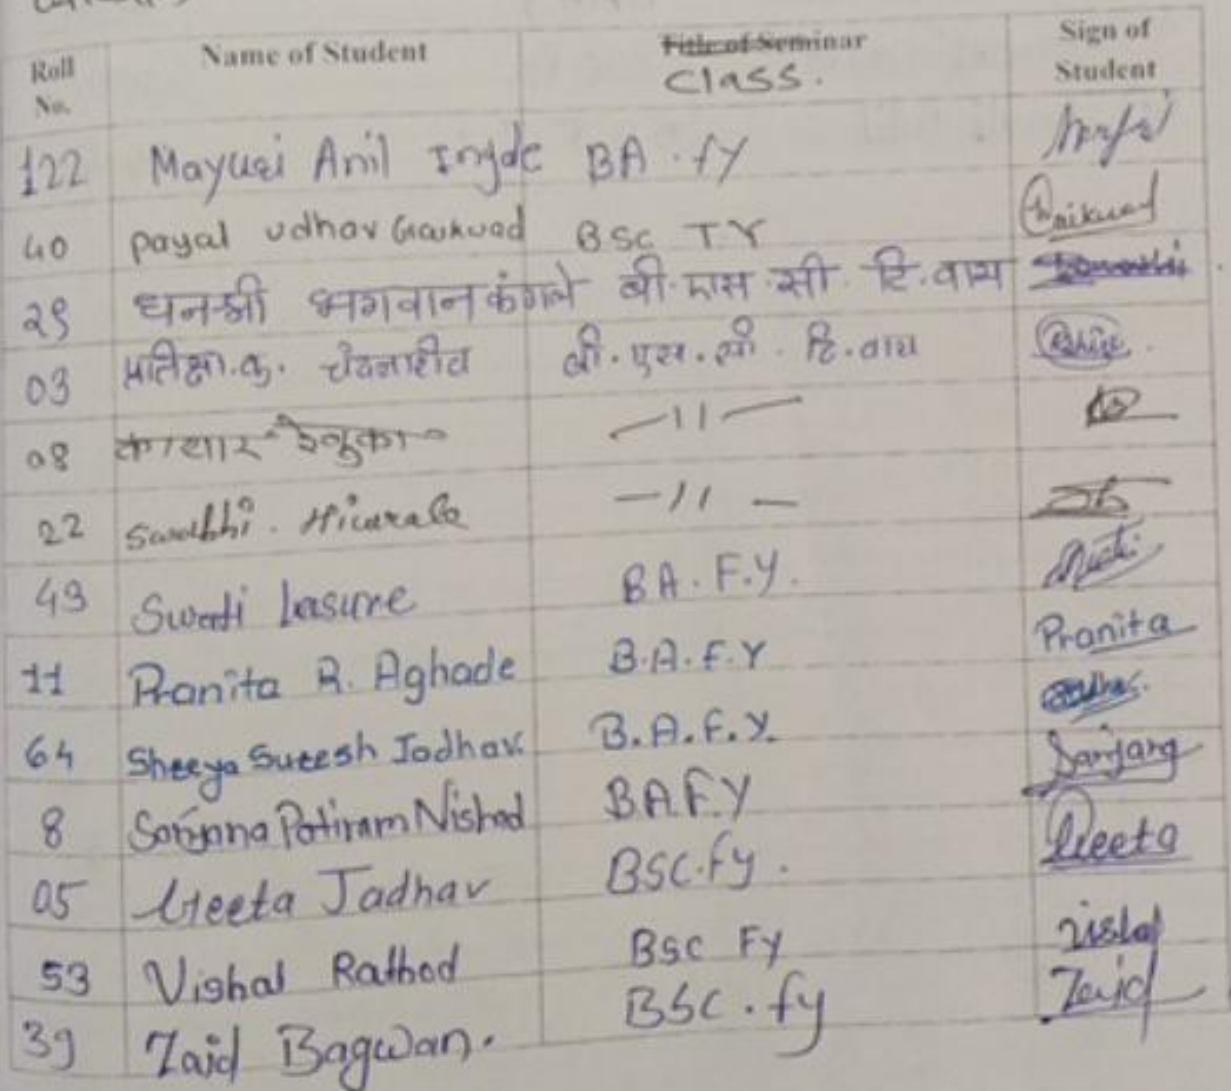 Roll No. Name of Student Title of Seminar Sign of Student
Class.
122 Mayuri Anil Ingde BA . fY
40 payal udhav Gaikwad BSc TY Gaikwad
29 धनश्री भगवान कंगले बी.एस.सी. टि.वाय
03 प्रतिक्षा.कु. बी.एस.सी. टि.वाय
08 रेणुका —11—
22 —11—
49 Swati Lasure BA. F.Y.
11 Pranita R. Aghade B.A.F.Y Pranita
64 Sheeya Sureesh Jadhav B.A.F.Y.
8 Sanjana Patiram Nishad BA.F.Y Sanjana
05 Geeta Jadhav BSC.fy. Geeta
53 Vishal Rathod BSC Fy Vishal
39 Zaid Bagwan. BSC.fy Zaid